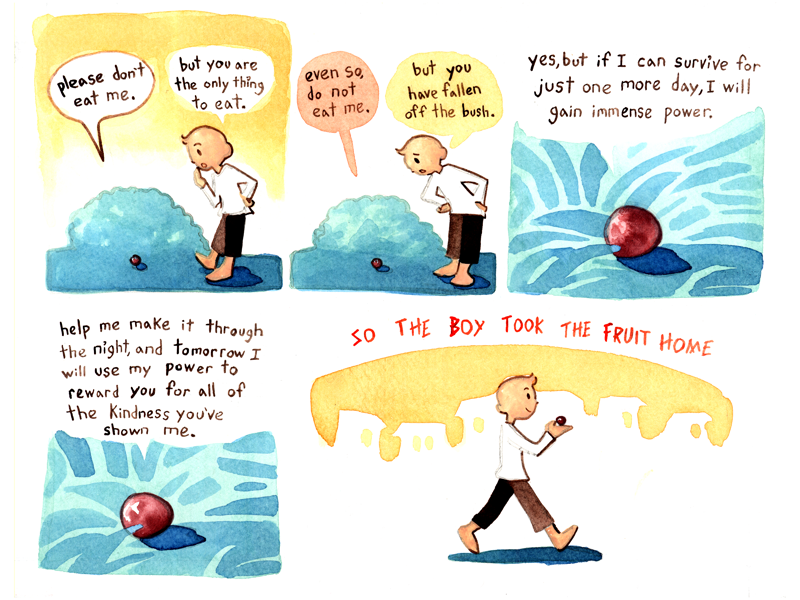 please don't
eat me.
but you are
the only thing
to eat.
even so,
do not
eat me.
but you
have fallen
off the bush.
yes, but if I can survive for
just one more day, I will
gain immense power.
help me make it through
the night, and tomorrow I
will use my power to
reward you for all of
the kindness you've
shown me.
SO THE BOY TOOK THE FRUIT HOME